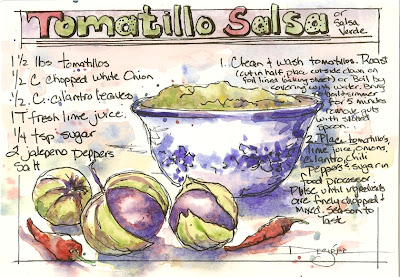 Tomatillo Salsa
Salsa
Verde
1½ lbs tomatillos
½ C Chopped White Onion
½ C. Cilantro Leaves
1 T fresh lime juice.
¼ tsp sugar
2 Jalapeno peppers
Salt
1. Clean & wash tomatillos. Roast
(cut in half place cut side down on
foil lined baking sheet) or Boil by
covering with water. Bring
to boil & simmer
for 5 minutes
remove
with slotted
spoon.
2. Place tomatillo's,
lime juice, onions,
Cilantro, Chili
Peppers & sugar in
food processor.
Pulse until ingredients
are finely chopped &
Mixed. Season to
Taste